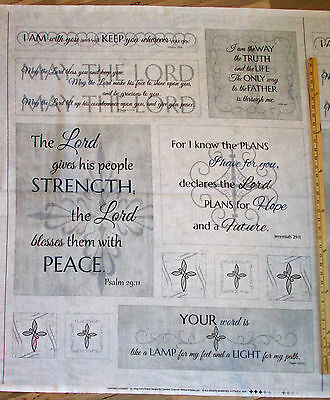 I AM with you and will KEEP you wherever you go.
I am the WAY
the TRUTH
and the LIFE.
The ONLY way
to the FATHER
is through me.
THE LORD
May the Lord bless you and keep you.
May the Lord make his face to shine upon you,
and be gracious to you.
May the Lord lift up his countenance upon you, and give you peace.
THE LORD
The Lord
gives his people
STRENGTH,
the Lord
blesses them with
PEACE.
Psalm 29:11
For I know the PLANS
I have for you,
declares the Lord
PLANS for Hope
and a Future.
Jeremiah 29:11
YOUR word is
like a LAMP for my feet and a LIGHT for my path.